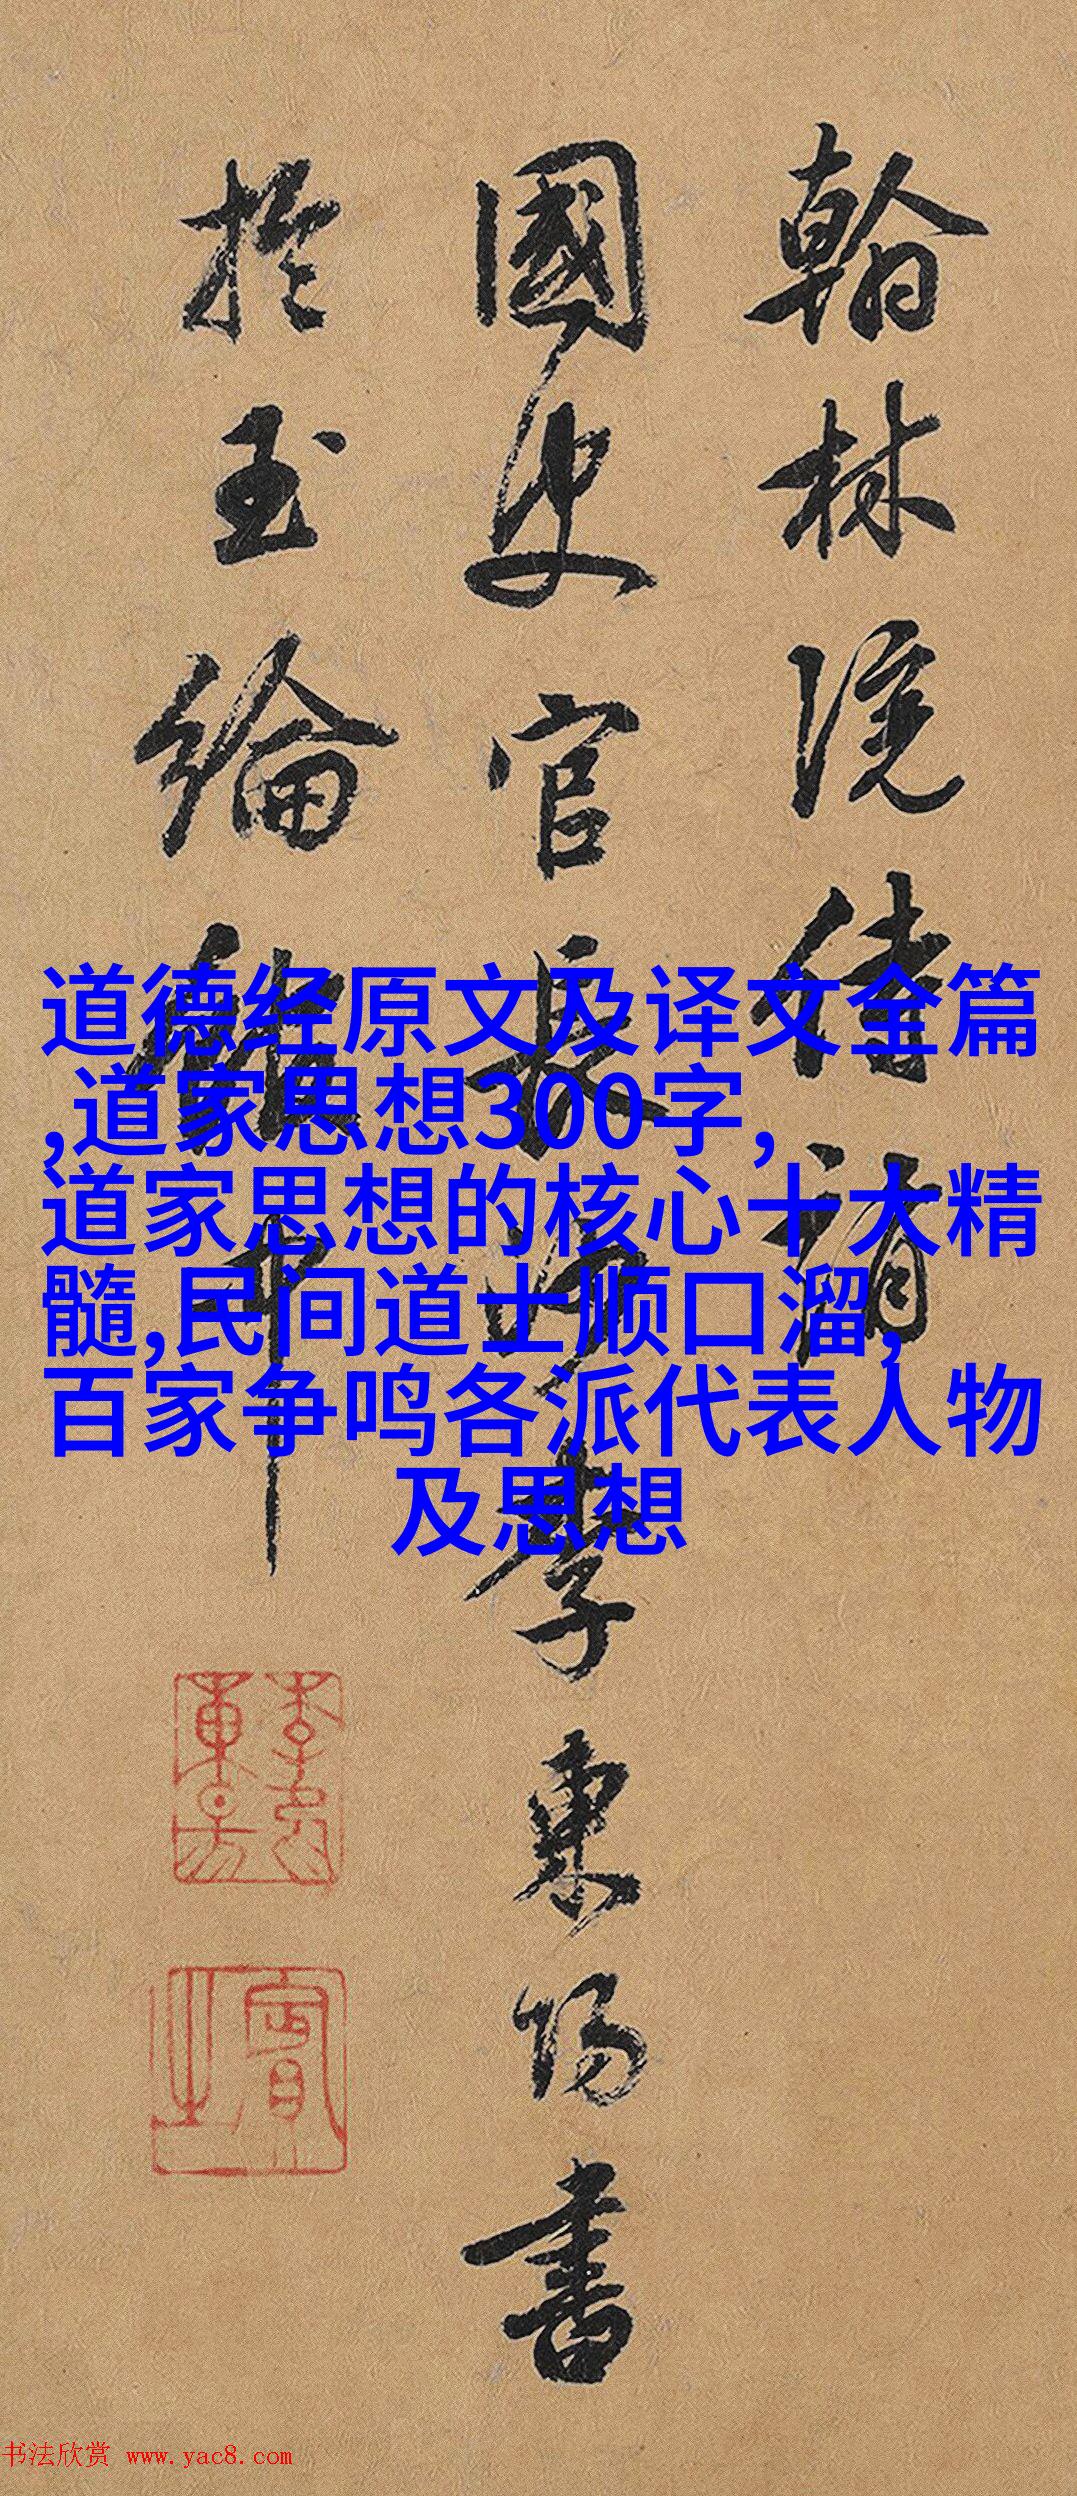 翰林院侍講
國史官長沙李東陽書
於玉綸館中
賓之
道德经原文及译文全篇
,道家思想300字,
道家思想的核心十大精
髓,民间道士顺口溜,
百家争鸣各派代表人物
及思想
书法欣赏 www.yac8.com